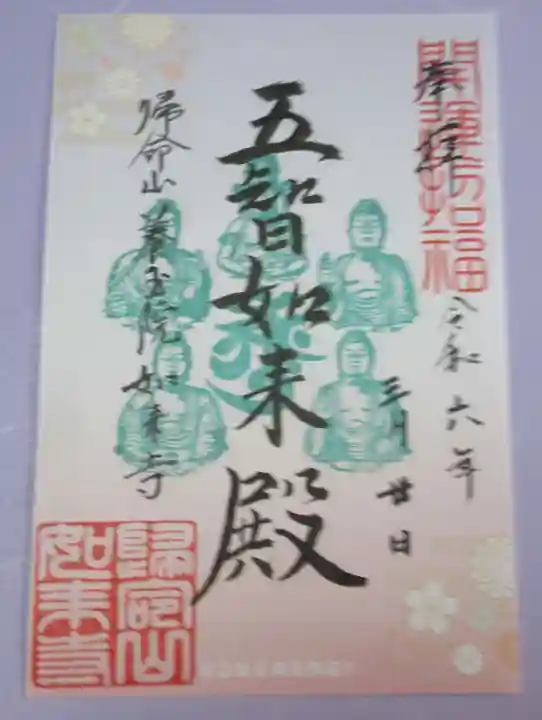 奉拝
開運招福
令和六年
三月廿日
五智如来殿
帰命山養玉院如来寺
歸命山
如来寺